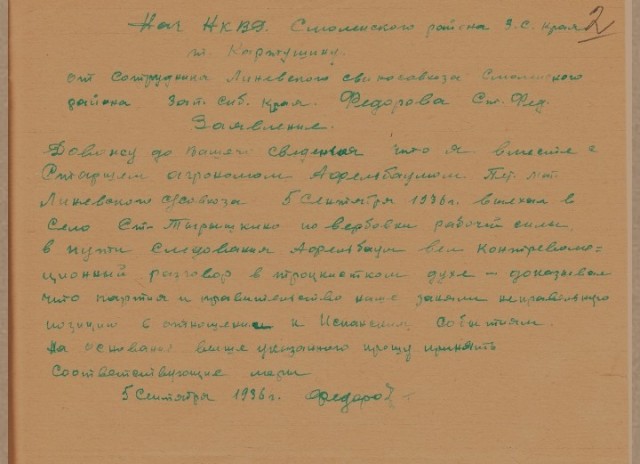 Нач НКВД. Смоленского района З.С. Края 2
т. Картушину.
от сотрудника Линевского свиносовхоза Смоленского
района Зап. Сиб. края. Федорова Ст. Фед.
Заявление.
Довожу до вашего сведения что я вместе с
Старшем агрономом Апфельбаумом Пет. Пет.
Линевского с/совхоза 5 Сентября 1936г. выехал в
Село Ст-Тырышкино по вербовки рабочей силы
в пути следования Апфельбаум вел контрреволю=
ционный разговор в троцкистком духе – доказывал
что партия и правительство наше заняли неправельную
позицию в отношение к Испанским Событиям.
На основание выше указанного прошу принять
соответствующие меры
5 Сентября 1936г. Федоров